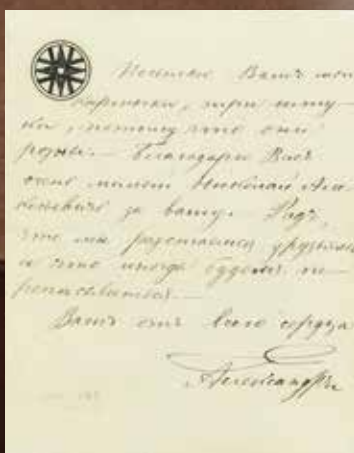 Посылаю Вамъ мои
карточки, три шту-
ки, потому что они
разны. — Благодарю Васъ
очень милый Николай Але-
ксеевичъ за вашу. Радъ,
что мы разстаемся друзьями
и что иногда будемъ пе-
реписываться. —
Вашъ отъ всего сердца
Александръ